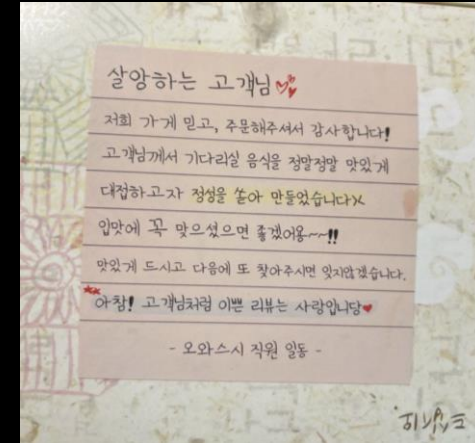 살앙하는 고객님
저희 가게 믿고, 주문해주셔서 감사합니다!
고객님께서 기다리실 음식을 정말정말 맛있게
대접하고자 정성을 쏟아 만들었습니다X
입맛에 꼭 맞으셨으면 좋겠어용~~!!
맛있게 드시고 다음에 또 찾아주시면 잊지않겠습니다.
아참! 고객님처럼 이쁜 리뷰는 사랑입니당♥
- 오와스시 직원 일동 -